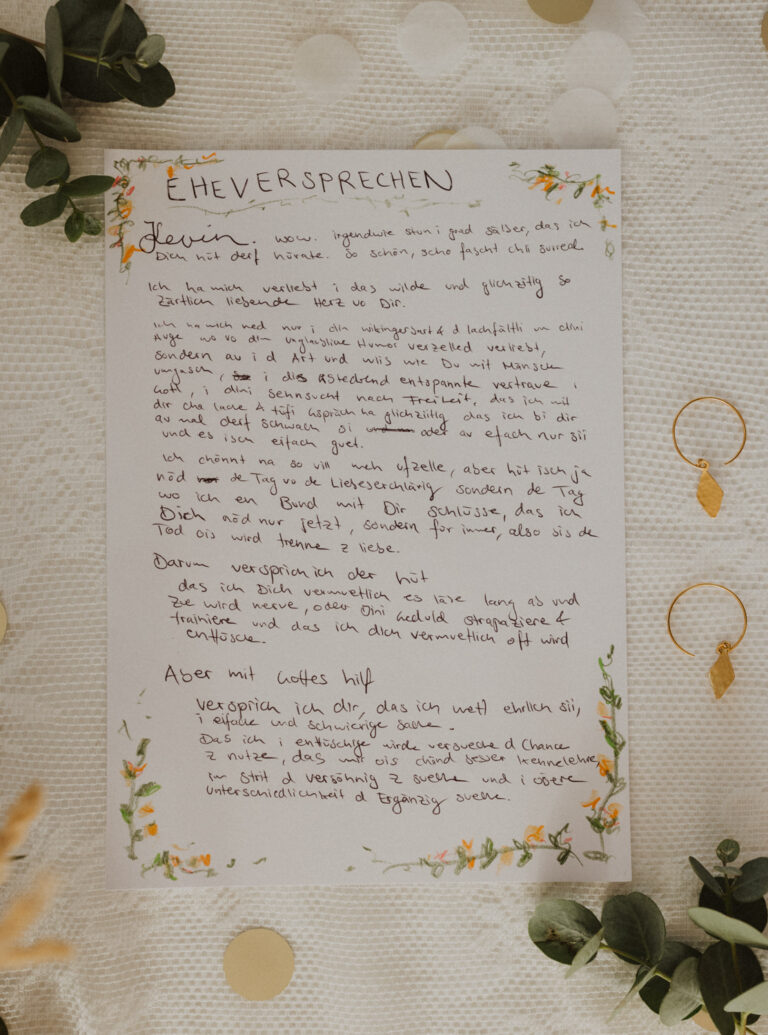 EHEVERSPRECHEN
Kevin. wow. irgendwie stun i grad sälber, das ich
Dich hüt derf hürate. So schön, scho fascht chli surreal
Ich ha mich verliebt i das wilde und glichzitig so
zärtlich liebende Herz vo Dir.
Ich ha mich ned nur i din wikingerbart & d lachfältli um dini
Auge wo vo dim unglaubliche Humor verzelled verliebt,
sondern au i d Art und wiis wie Du mit Mänsche
umgasch, i dis asteckend entspannte vertraue i
Gott, i dini sehnsucht nach Freiheit, das ich mit
dir cha lache & tüfi Gspräch ha glichziitig das ich bi dir
au mal derf schwach si oder au efach nur sii
und es isch eifach guet.
Ich chönnt na so vill meh ufzelle, aber hüt isch ja
nöd de Tag vo de Liebeserchlärig sondern de Tag
wo ich en Bund mit Dir schlüsse, das ich
Dich nöd nur jetzt, sondern für immer, also bis de
Tod ois wird trenne z liebe.
Darum versprich ich der hüt
das ich Dich vermuetlich es läbe lang ab und
zue wird nerve, oder Dini Geduld strapaziere &
trainiere und das ich dich vermuetlich oft wird
enttüsche.
Aber mit Gottes hilf
versprich ich dir, das ich wett ehrlich sii,
i eifache und schwierige sache.
Das ich i enttüschige würde versueche d Chance
z nutze, das mir ois chönd besser kennelehre,
im Strit d versöhnig z sueche und i öisere
unterschiedlichkeit d Ergänzig sueche.